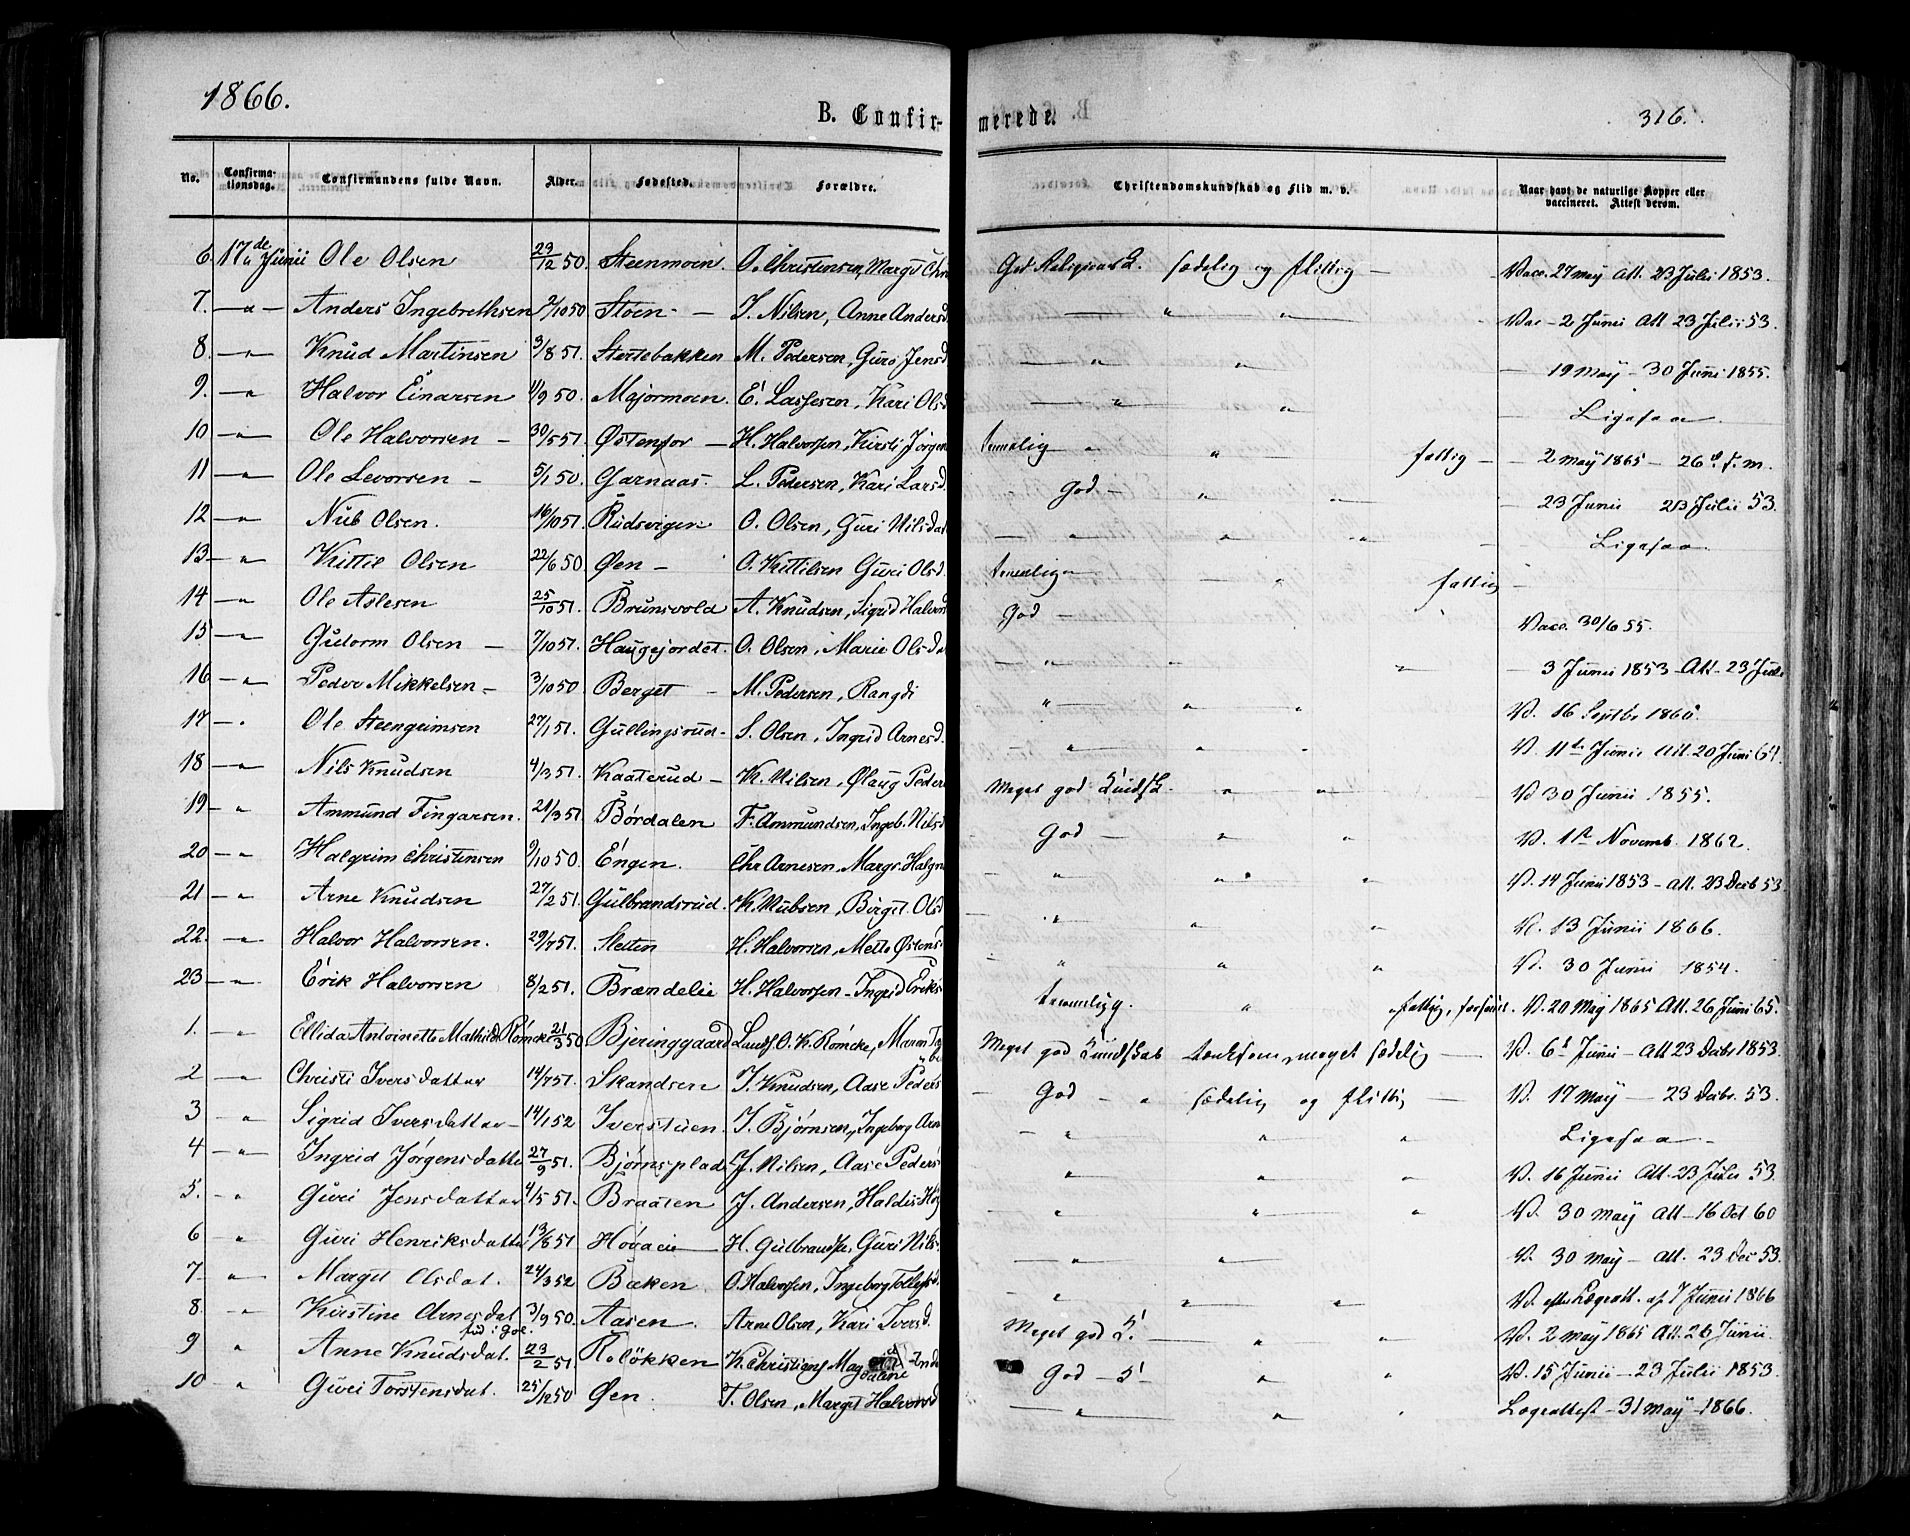 1866.
B. Confir-
merede.
316.
No.
Confirma-
tionsdag.
Confirmandens fulde Navn.
Alder.
Fødested.
Forældre.
Christendomskundskab og Flid m. v.
Naar havt de naturlige Kopper eller
vaccineret. Attest derom.
6. 17de Junii Ole Olsen 29/12 50 Steenmoen. O. Christensen, Margit Chr God Religionsk. sædelig og flittig — Vacc. 27 may Att. 23 Julii 1853.
7. — " — Anders Ingebrethsen 2/10 50 Støen — I. Nilsen, Anne Andersd. — " — " — Vac — 2 Junii Att 23 Julii 53.
8. — " Knud Martinsen 3/8 51. Stertebakken M. Pedersen, Guro Jensd — " — " — 19 may — 30 Junii 1855.
9. — " Halvor Einarsen 4/9 50. Majormoen. E. Lassesen, Kari Olsd — " — " Ligesaa
10 — " — Ole Halvorsen — 30/5 51. Østenfor — H. Halvorsen, Kirsti Jørgen temmelig " " fattig — 2 may 1865 — 26 d. m.
11 — " — Ole Levorsen — 5/1 50. Garnaas. L. Pedersen, Kari Larsd. God — " — 23 Junii 23 Julii 53.
12 — " Nub Olsen. 16/10 51 Rudsvigen O. Olsen, Guri Nilsdat — " " " — Ligesaa
13 — " Kittil Olsen 22/6 50. Øen — O. Kittilsen Guri Olsd. temmelig — " fattig —
14 — " Ole Aslesen 25/10 51. Brunsvold A. Knudsen, Sigrid Halvors God — Vacc. 30/6 55.
15 — " Gudorm Olsen — 7/10 51. Haugejordet. O. Olsen, Marie Olsda — " — " " — 3 Junii 1853 — Att. 23 Julii
16 — " Peder Mikkelsen — 3/10 50 Berget — M. Pedersen, Rangdi " — " " V. 16 Septbr 1865.
17 — " Ole Steengrimsen 27/1 51. Gullingsrud — S. Olsen, Ingrid Arnesd. — " — " — V. 11te Junii Att. 20 Juni 64.
18 — " Nils Knudsen 4/3 51. Kaaterud — K. Nilsen, Ølaug Peder Meget god Kundsk. " " V 30 Junii 1855.
19 — " Ammund Fingarsen. 21/3 51 Børdalen F. Ammundsen, Ingeb. Nilsd God — " " V. 1st Novemb. 1862.
20 — " Halgrim Christensen 9/10 50. Engen. Chr Arnesen, Margr. Halgr — " — " " V. 14 Junii 1853 — Att. 23 Decb 53
21 — " Arne Knudsen 27/2 51. Gulbrandsrud. K. Nubsen, Birgit Olsd — " — " " V. 13 Junii 1866.
22. — " Halvor Halvorsen. 29/7 51. Sletten H. Halvorsen, Mette Østens — " " " V. 30 Junii 1854.
23 — " Erik Halvorsen 8/2 51. Brændelie H. Halvorsen — Ingrid Eriks temmelig. " fattig, V. 20 May 1865 Att. 26 Juni 65.
1. " Ellida Antoinette Mathilde Rømcke 21/3 50 Bjeringgaard Landh. O. K. Rømcke, Maren Meget god Kundskab tænksom, meget sædelig — V. 6t Junii — Att 23 Decbr 1853.
2 — " Christi Iversdatter 14/7 51. Skandsen I. Knudsen, Aase Peders God — " sædelig og flittig — V. 17 may — 23 Decbr. 53.
3 " Sigrid Iversdatter — 14/1 52 Iverstuen. I. Bjørnsen, Ingeborg Arn — " — " " Ligesaa —
4 — " Ingrid Jørgensdatte 27/9 51. Bjørnsplads J. Nilsen, Aase Peders " " " V. 16 Junii Att. 23 Julii 53.
5. " Guri Jensdatter 4/5 51. Braaten J. Andersen, Haldis " " " V. 30 may Att — 16 Oct 60
6 " Guri Henriksdatter 13/8 51 Høvacie H. Gulbrands., Guri Nils — " — " — V. 30 may — Att. 23 Dec 53.
7 — " Margit Olsdat. 24/3 52 Baken. O. Halvorsen, Ingeborg Tollefsd. — " " " V. efter Lægeatt. af 7 Junii 1866
8. " Kirstine Arnesdat 3/9 50. Aasen. Arne Olsen, Kari Iversd. Meget god K. — " " V. 2 may 1865 Att. 26 Junii.
fød i Gol.
9 " Anne Knudsdat. 23/2 51 Roløkken K. Christians Magdalene God — K — " " V. 15 Junii — 23 Julii 1853.
10 " Guri Torstensdat. 25/12 50 Øen. T. Olsen, Margit Halvorsd — " — " Lægeattest — 31 may — 1866.